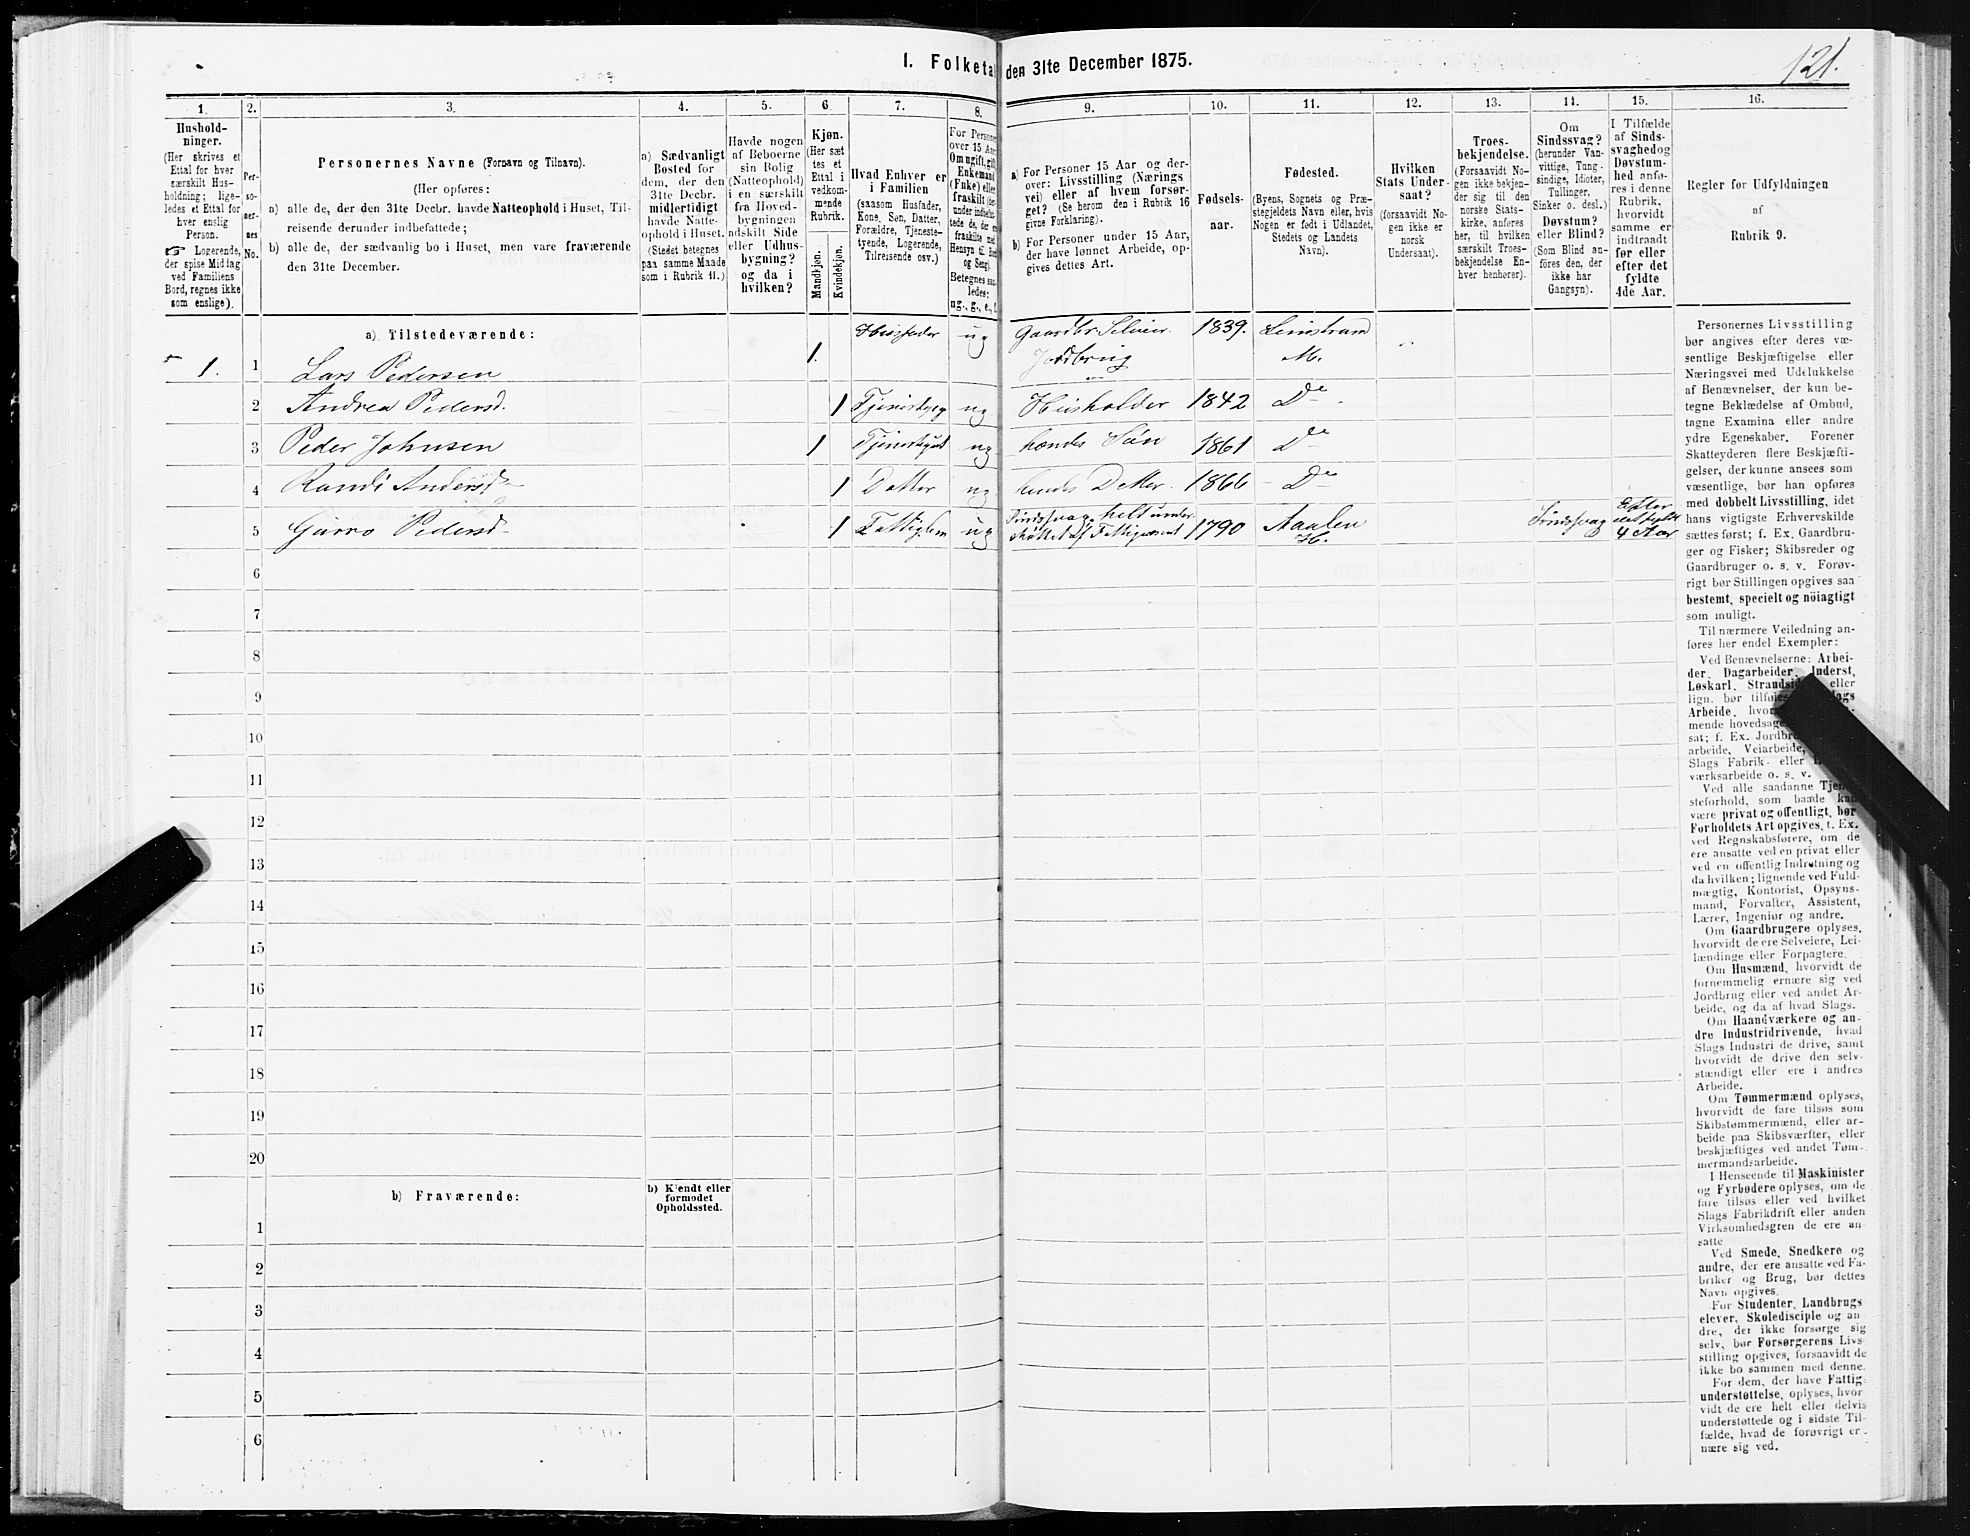 1. Folketal den 31te December 1875.
121.
1.
2.
3.
4.
5.
6.
7.
8.
9.
10.
11.
12.
13.
14.
15.
16.
Hushold-
ninger.
(Her skrives et
Ettal for hver
særskilt Hus-
holdning; lige-
ledes et Ettal for
hver enslig
Person.
☞ Logerende,
der spise Middag
ved Familiens
Bord, regnes ikke
som enslige).
Per-
so-
ner-
nes
No.
Personernes Navne (Fornavn og Tilnavn).
(Her opføres:
a) alle de, der den 31te Decbr. havde Natteophold i Huset, Til-
reisende derunder indbefattede;
b) alle de, der sædvanlig bo i Huset, men vare fraværende
den 31te December.
a) Sædvanligt
Bosted for
dem, der den
31te Decbr.
midlertidigt
havde Natte-
ophold i Huset.
(Stedet betegnes
paa samme Maade
som i Rubrik 11.)
Havde nogen
af Beboerne
sin Bolig
(Natteophold)
i en særskilt
fra Hoved-
bygningen
adskilt Side
eller Udhus-
bygning?
og da i
hvilken?
Kjøn.
(Her sæt
tes et
Ettal i
vedkom-
mende
Rubrik.
Mandkjøn.
Kvindekjøn.
Hvad Enhver er
i Familien
(saasom Husfader,
Kone, Søn, Datter,
Forældre, Tjeneste-
tyende, Logerende,
Tilreisende osv.)
For Personer
over 15 Aar:
Om ugift, gift,
Enkemand
(Enke) eller
fraskilt
Betegnes saa-
ledes:
ug., g., e., f.
a) For Personer 15 Aar og der-
over: Livsstilling (Nærings
vei) eller af hvem forsør-
get? (Se herom den i Rubrik 16
givne Forklaring).
b) For Personer under 15 Aar,
der have lønnet Arbeide, op-
gives dettes Art.
Fødsels-
aar.
Fødested.
(Byens, Sognets og Præ-
stegjeldets Navn eller, hvis
Nogen er født i Udlandet,
Stedets og Landets
Navn).
Hvilken
Stats Under-
saat?
(forsaavidt No-
gen ikke er
norsk
Undersaat).
Troes-
bekjendelse.
(Forsaavidt No-
gen ikke bekjen-
der sig til den
norske Stats-
kirke, anføres
her, til hvilken
særskilt Troes-
bekjendelse En-
hver henhører).
Om
Sindssvag?
(herunder Van-
vittige, Tung-
sindige, Idioter,
Tullinger,
Sinker o. desl.)
Døvstum?
eller Blind?
(Som Blind an-
føres den, der
ikke har
Gangsyn).
I Tilfælde
af Sinds-
svaghed og
Døvstum-
hed anfø-
res i denne
Rubrik,
hvorvidt
samme er
indtraadt
før eller
efter det
fyldte
4de Aar.
Regler for Udfyldningen
af
Rubrik 9.
a) Tilstedeværende:
1. 1 Lars Pedersen 1. Husfader ug Gaardbr. Selveier Jordbrug 1839. Limstrand M.
2 Andrea Pedersd. 1 ug Husholder 1842 Do
3 Peder Johnsen 1 ug hendes Søn 1861 Do
4 Randi Andersd. 1 Datter ug hendes Datter 1866 Do
5 Gurro Pedersd. 1 Fattiglem ug Sindssvag, helt under- støttet af Fattigvæsenet 1790 Aaalen H. Sindssvag Efter det fyldte 4 Aar
6
7
8
9
10
11
12
13
14
15
16
17
18
19
20
b) Fraværende:
b) Kjendt eller
formodet
Opholdssted.
1
2
3
4
5
6
Personernes Livsstilling
bør angives efter deres væ-
sentlige Beskjæftigelse eller
Næringsvei med Udelukkelse
af Benævnelser, der kun be-
tegne Beklædelse af Ombud,
tagne Examina eller andre
ydre Egenskaber. Forener
Skatteyderen flere Beskjæfti-
gelser, der kunne ansees som
væsentlige, bør han opføres
med dobbelt Livsstilling, idet
hans vigtigste Erhvervskilde
sættes først; f. Ex. Gaardbru-
ger og Fisker; Skibsreder og
Gaardbruger o. s. v. Forøv-
rigt bør Stillingen opgives saa
bestemt, specielt og nöiagtigt
som muligt.
Til nærmere Veiledning an-
føres her endel Exempler:
Ved Benævnelserne: Arbei-
der, Dagarbeider, Inderst,
Løskarl, eller
lign. bør
Arbeide,
mende
sat; f. Ex.
arbeide, Veiarbeide,
Slags Fabrik- eller
værksarbeide o. s. v.
Ved alle saadanne
steforhold, som baade kan
være privat og offentligt, bør
Forholdets Art opgives, t. Ex.
ved Regnskabsførere, om de
ere ansatte ved en privat eller
ved en offentlig Indretning og
da hvilken; lignende ved Fuld-
mægtig, Kontorist, Opsyns-
mand, Forvalter, Assistent,
Lærer, Ingeniør og andre.
Om Gaardbrugere oplyses,
hvorvidt de ere Selveiere, Lei-
lændinge eller Forpagtere.
Om Husmænd, hvorvidt de
fornemmelig ernære sig ved
Jordbrug eller ved andet Ar-
beide, og da af hvad Slags.
Om Haandværkere og an-
dre Industridrivende, hvad
Slags Industri de drive, samt
hvorvidt de drive den selv-
stændigt eller ere i andres
Arbeide.
Om Tømmermænd oplyses,
hvorvidt de fare tilsøs som
Skibstømmermænd, eller ar-
beide paa Skibsværfter, eller
beskjæftiges ved andet Tøm-
mermandsarbeide.
I Henseende til Maskinister
og Fyrbødere oplyses, om de
fare tilsøs eller ved hvilket
Slags Fabrikdrift eller anden
Virksomhedsgren de ere an-
satte.
Ved Smede, Snedkere og
andre, der ere ansatte ved Fa-
briker og Brug, bør dettes
Navn opgives.
For Studenter, Landbrugs
elever, Skoledisciple og an-
dre, der ikke forsørge sig
selv, bør Forsørgerens Livs-
stilling opgives, forsaavidt de
ikke bo sammen med denne.
For dem, der have Fattig-
understøttelse, oplyses, hvor-
vidt de ere helt eller delvis
understøttede og i sidste Til-
fælde, hvad de forøvrigt er-
nære sig ved.